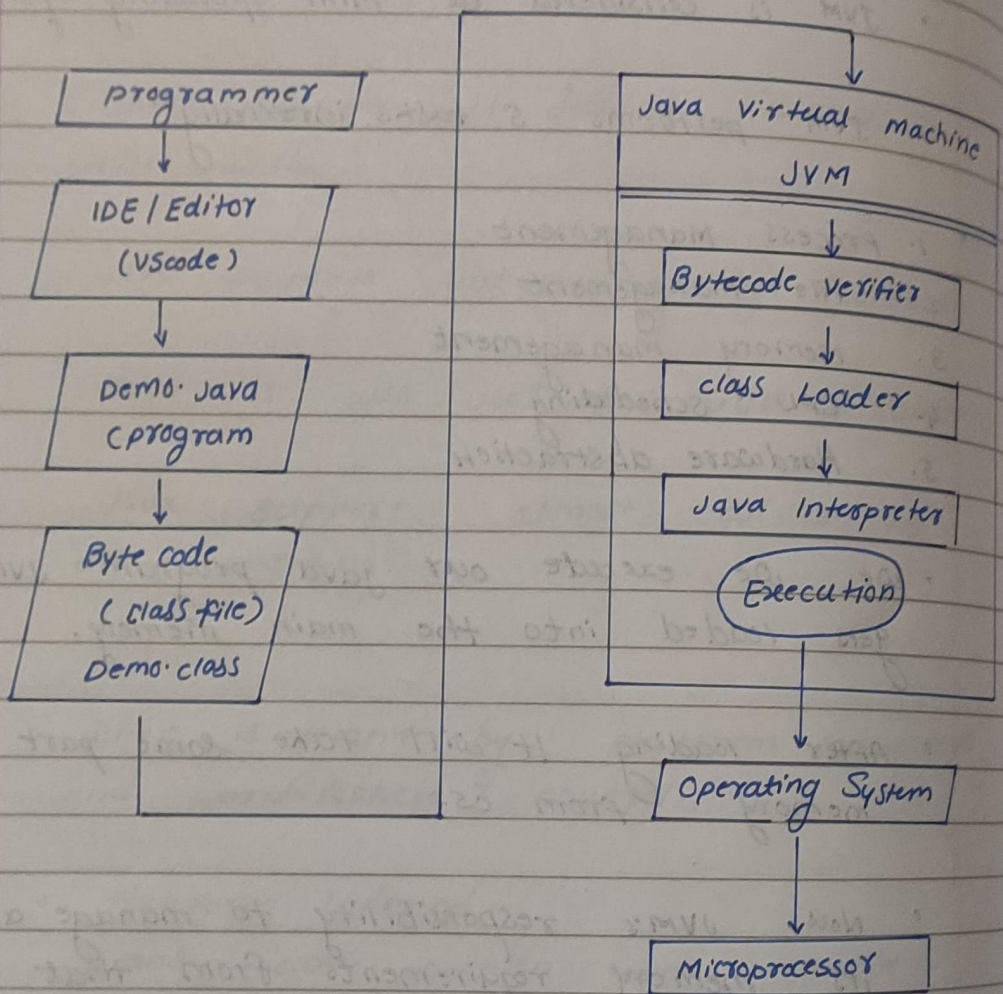 programmer
IDE / Editor
(VScode)
Demo. Java
(program
Byte code
(class file)
Demo. class
Java Virtual machine
JVM
Bytecode verifier
class Loader
Java Interpreter
Execution
Operating System
Microprocessor